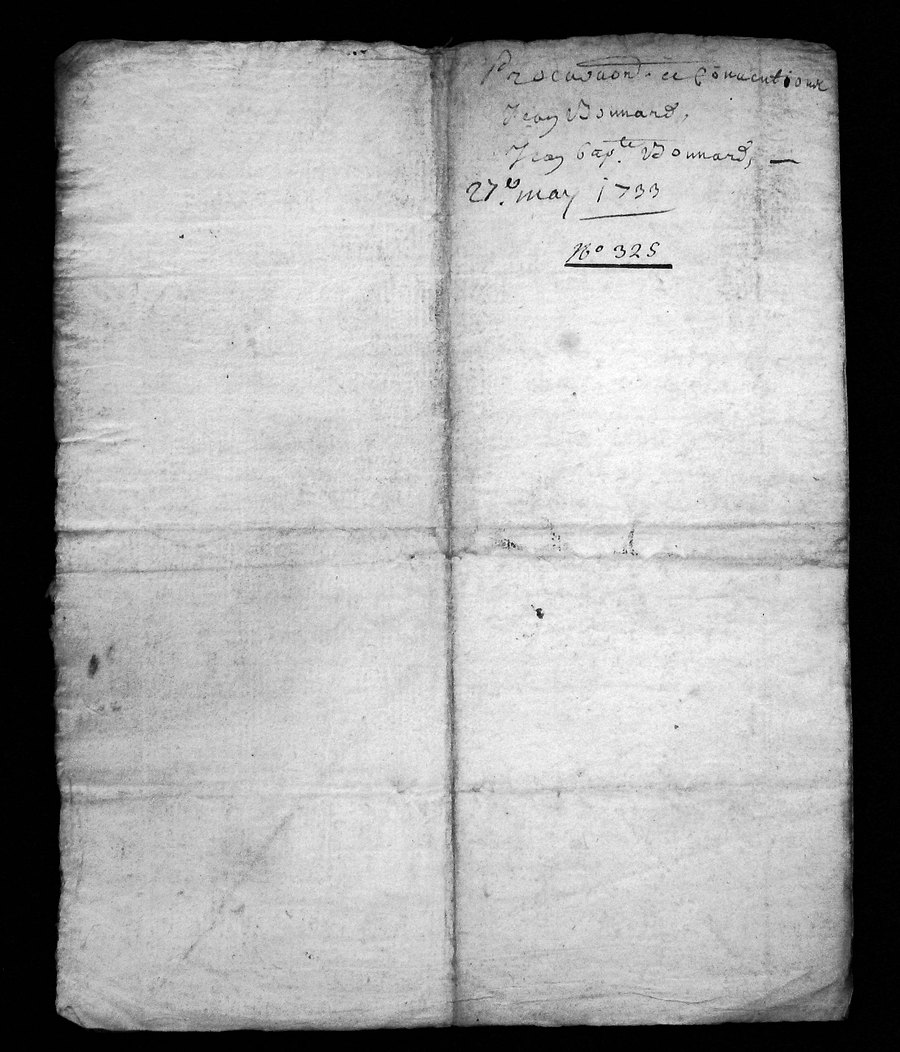 Procuraon. et Conventions
Jean Bonnard,
Jean bapte. Bonnard, —
27e. may 1733
No 325